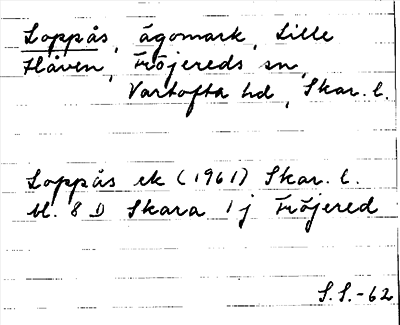 Loppås, ägomark, Lille
Håven, Fröjereds sn,
Vartofta hd, Skar. l.
Loppås ek (1961) Skar. l.
bl. 8 D Skara 1 j Fröjered
S.S.-62